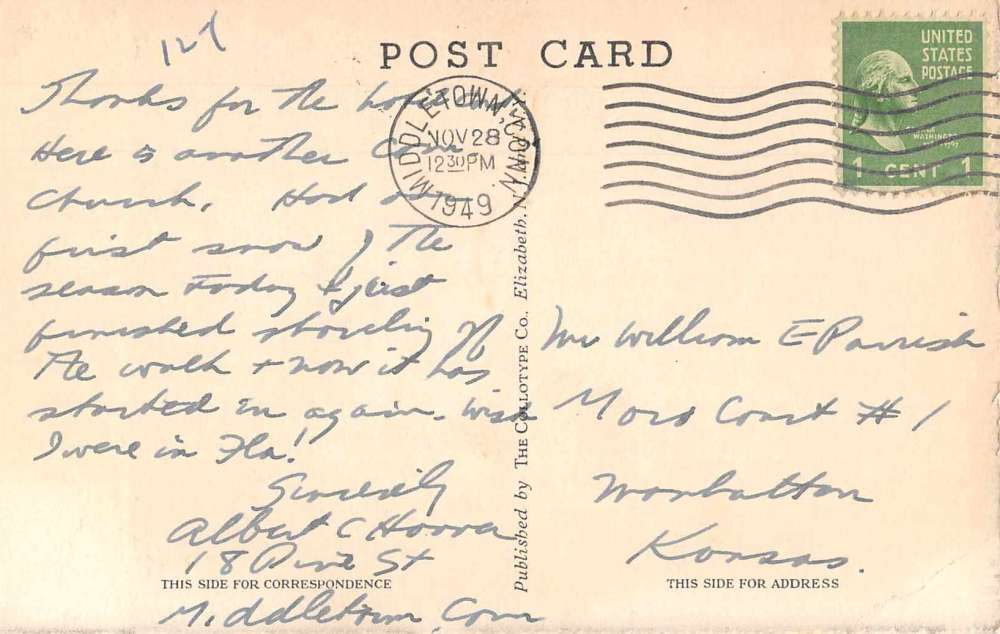 127
POST CARD
UNITED
STATES
POSTAGE
1 CENT 1
MIDDLETOWN, CONN.
NOV 28
12 30 PM
1949
Thanks for the
Here is another Conn
Church. Had our
first snow of the
season today & just
finished shoveling off
the walk + now it has
started in again. Wish
I were in Fla!
Sincerely
Albert C
18 Pine St
Middletown, Conn
Mr William E Parrish
Moro Court # 1
Manhattan
Kansas.
Published by THE COLLOTYPE CO., Elizabeth, N.J.
THIS SIDE FOR CORRESPONDENCE
THIS SIDE FOR ADDRESS